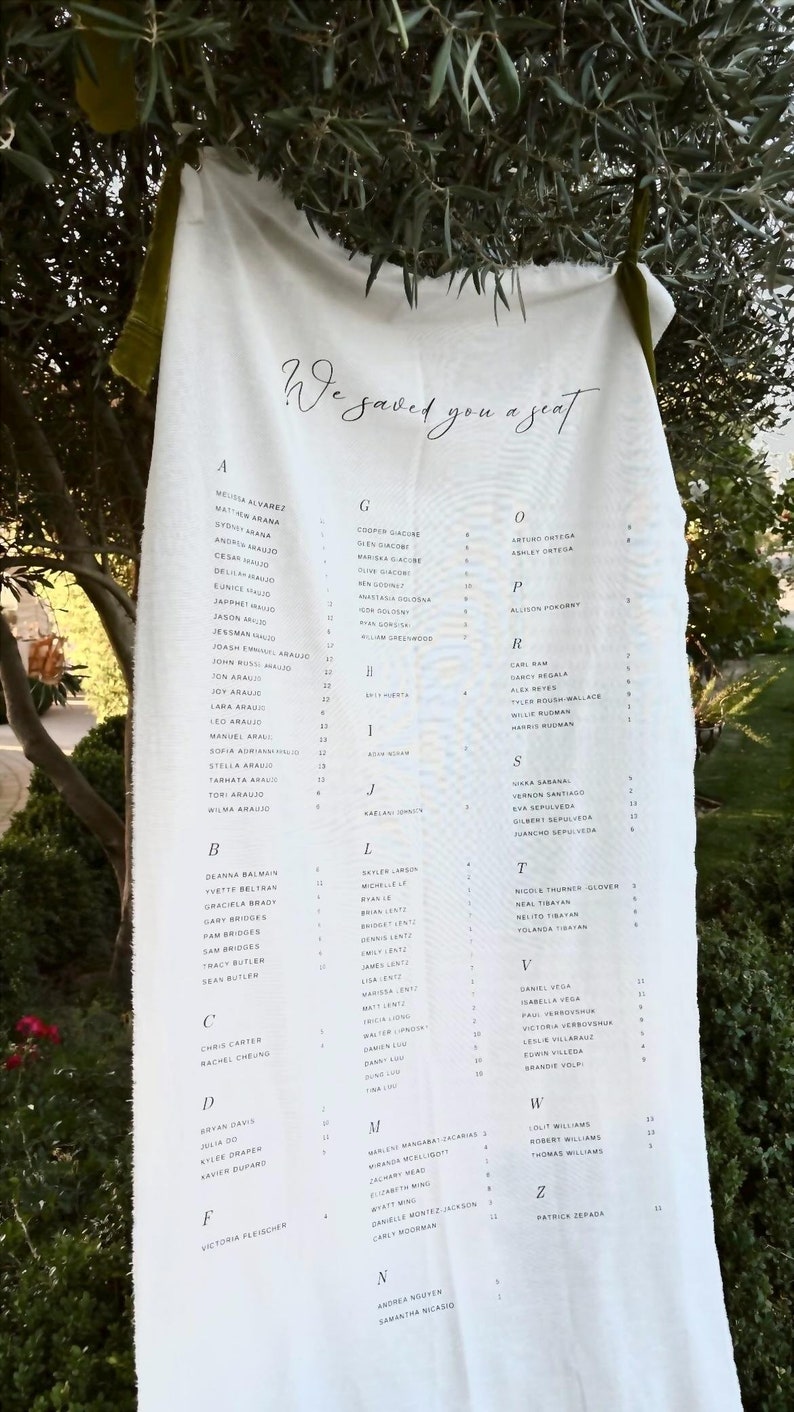 We saved you a seat
A
MELISSA ALVAREZ
MATTHEW ARANA
SYDNEY ARANA
ANDREW ARAUJO
CESAR ARAUJO
DELILAH ARAUJO
EUNICE ARAUJO
JAPPHET ARAUJO 12
JASON ARAUJO 12
JESSMAN ARAUJO 6
JOASH EMMANUEL ARAUJO 12
JOHN RUSSE ARAUJO 12
JON ARAUJO 12
JOY ARAUJO 12
LARA ARAUJO 6
LEO ARAUJO 13
MANUEL ARAUJO 13
SOFIA ADRIANNA ARAUJO 12
STELLA ARAUJO 13
TARHATA ARAUJO 13
TORI ARAUJO 6
WILMA ARAUJO 6
B
DEANNA BALMAIN 8
YVETTE BELTRAN 11
GRACIELA BRADY
GARY BRIDGES
PAM BRIDGES
SAM BRIDGES
TRACY BUTLER
SEAN BUTLER 10
C
CHRIS CARTER 5
RACHEL CHEUNG
D
BRYAN DAVIS 2
JULIA DO 10
KYLEE DRAPER 11
XAVIER DUPARD 5
F
VICTORIA FLEISCHER 4
G
COOPER GIACOBE 6
GLEN GIACOBE 6
MARISKA GIACOBE 6
OLIVE GIACOBE 6
BEN GODINEZ 10
ANASTASIA GOLOSNA 9
IGOR GOLOSNY 9
RYAN GORSISKI 3
WILLIAM GREENWOOD 2
H
HUERTA 4
I
ADAM INGRAM 2
J
KAELANI JOHNSON 3
L
SKYLER LARSON 4
MICHELLE LE 2
RYAN LE 1
BRIAN LENTZ 1
BRIDGET LENTZ 7
DENNIS LENTZ 1
EMILY LENTZ 7
JAMES LENTZ 7
LISA LENTZ 1
MARISSA LENTZ 7
MATT LENTZ 7
TRICIA LIONG 2
WALTER LIPNOSKY 2
DAMIEN LUU 10
DANNY LUU 5
DUNG LUU 10
TINA LUU 10
M
MARLENE MANGABAT-ZACARIAS 3
MIRANDA MCELLIGOTT 4
ZACHARY MEAD 1
ELIZABETH MING 8
WYATT MING 8
DANIELLE MONTEZ-JACKSON 3
CARLY MOORMAN 11
N
ANDREA NGUYEN 5
SAMANTHA NICASIO 1
O
ARTURO ORTEGA 8
ASHLEY ORTEGA 8
P
ALLISON POKORNY 3
R
CARL RAM 2
DARCY REGALA 5
ALEX REYES 6
TYLER ROUSH-WALLACE 9
WILLIE RUDMAN 1
HARRIS RUDMAN 1
S
NIKKA SABANAL 5
VERNON SANTIAGO 2
EVA SEPULVEDA 13
GILBERT SEPULVEDA 13
JUANCHO SEPULVEDA 6
T
NICOLE THURNER -GLOVER 3
NEAL TIBAYAN 6
NELITO TIBAYAN 6
YOLANDA TIBAYAN 6
V
DANIEL VEGA 11
ISABELLA VEGA 11
PAUL VERBOVSHUK 9
VICTORIA VERBOVSHUK 9
LESLIE VILLARAUZ 5
EDWIN VILLEDA 4
BRANDIE VOLPI 9
W
LOLIT WILLIAMS 13
ROBERT WILLIAMS 13
THOMAS WILLIAMS 3
Z
PATRICK ZEPADA 11